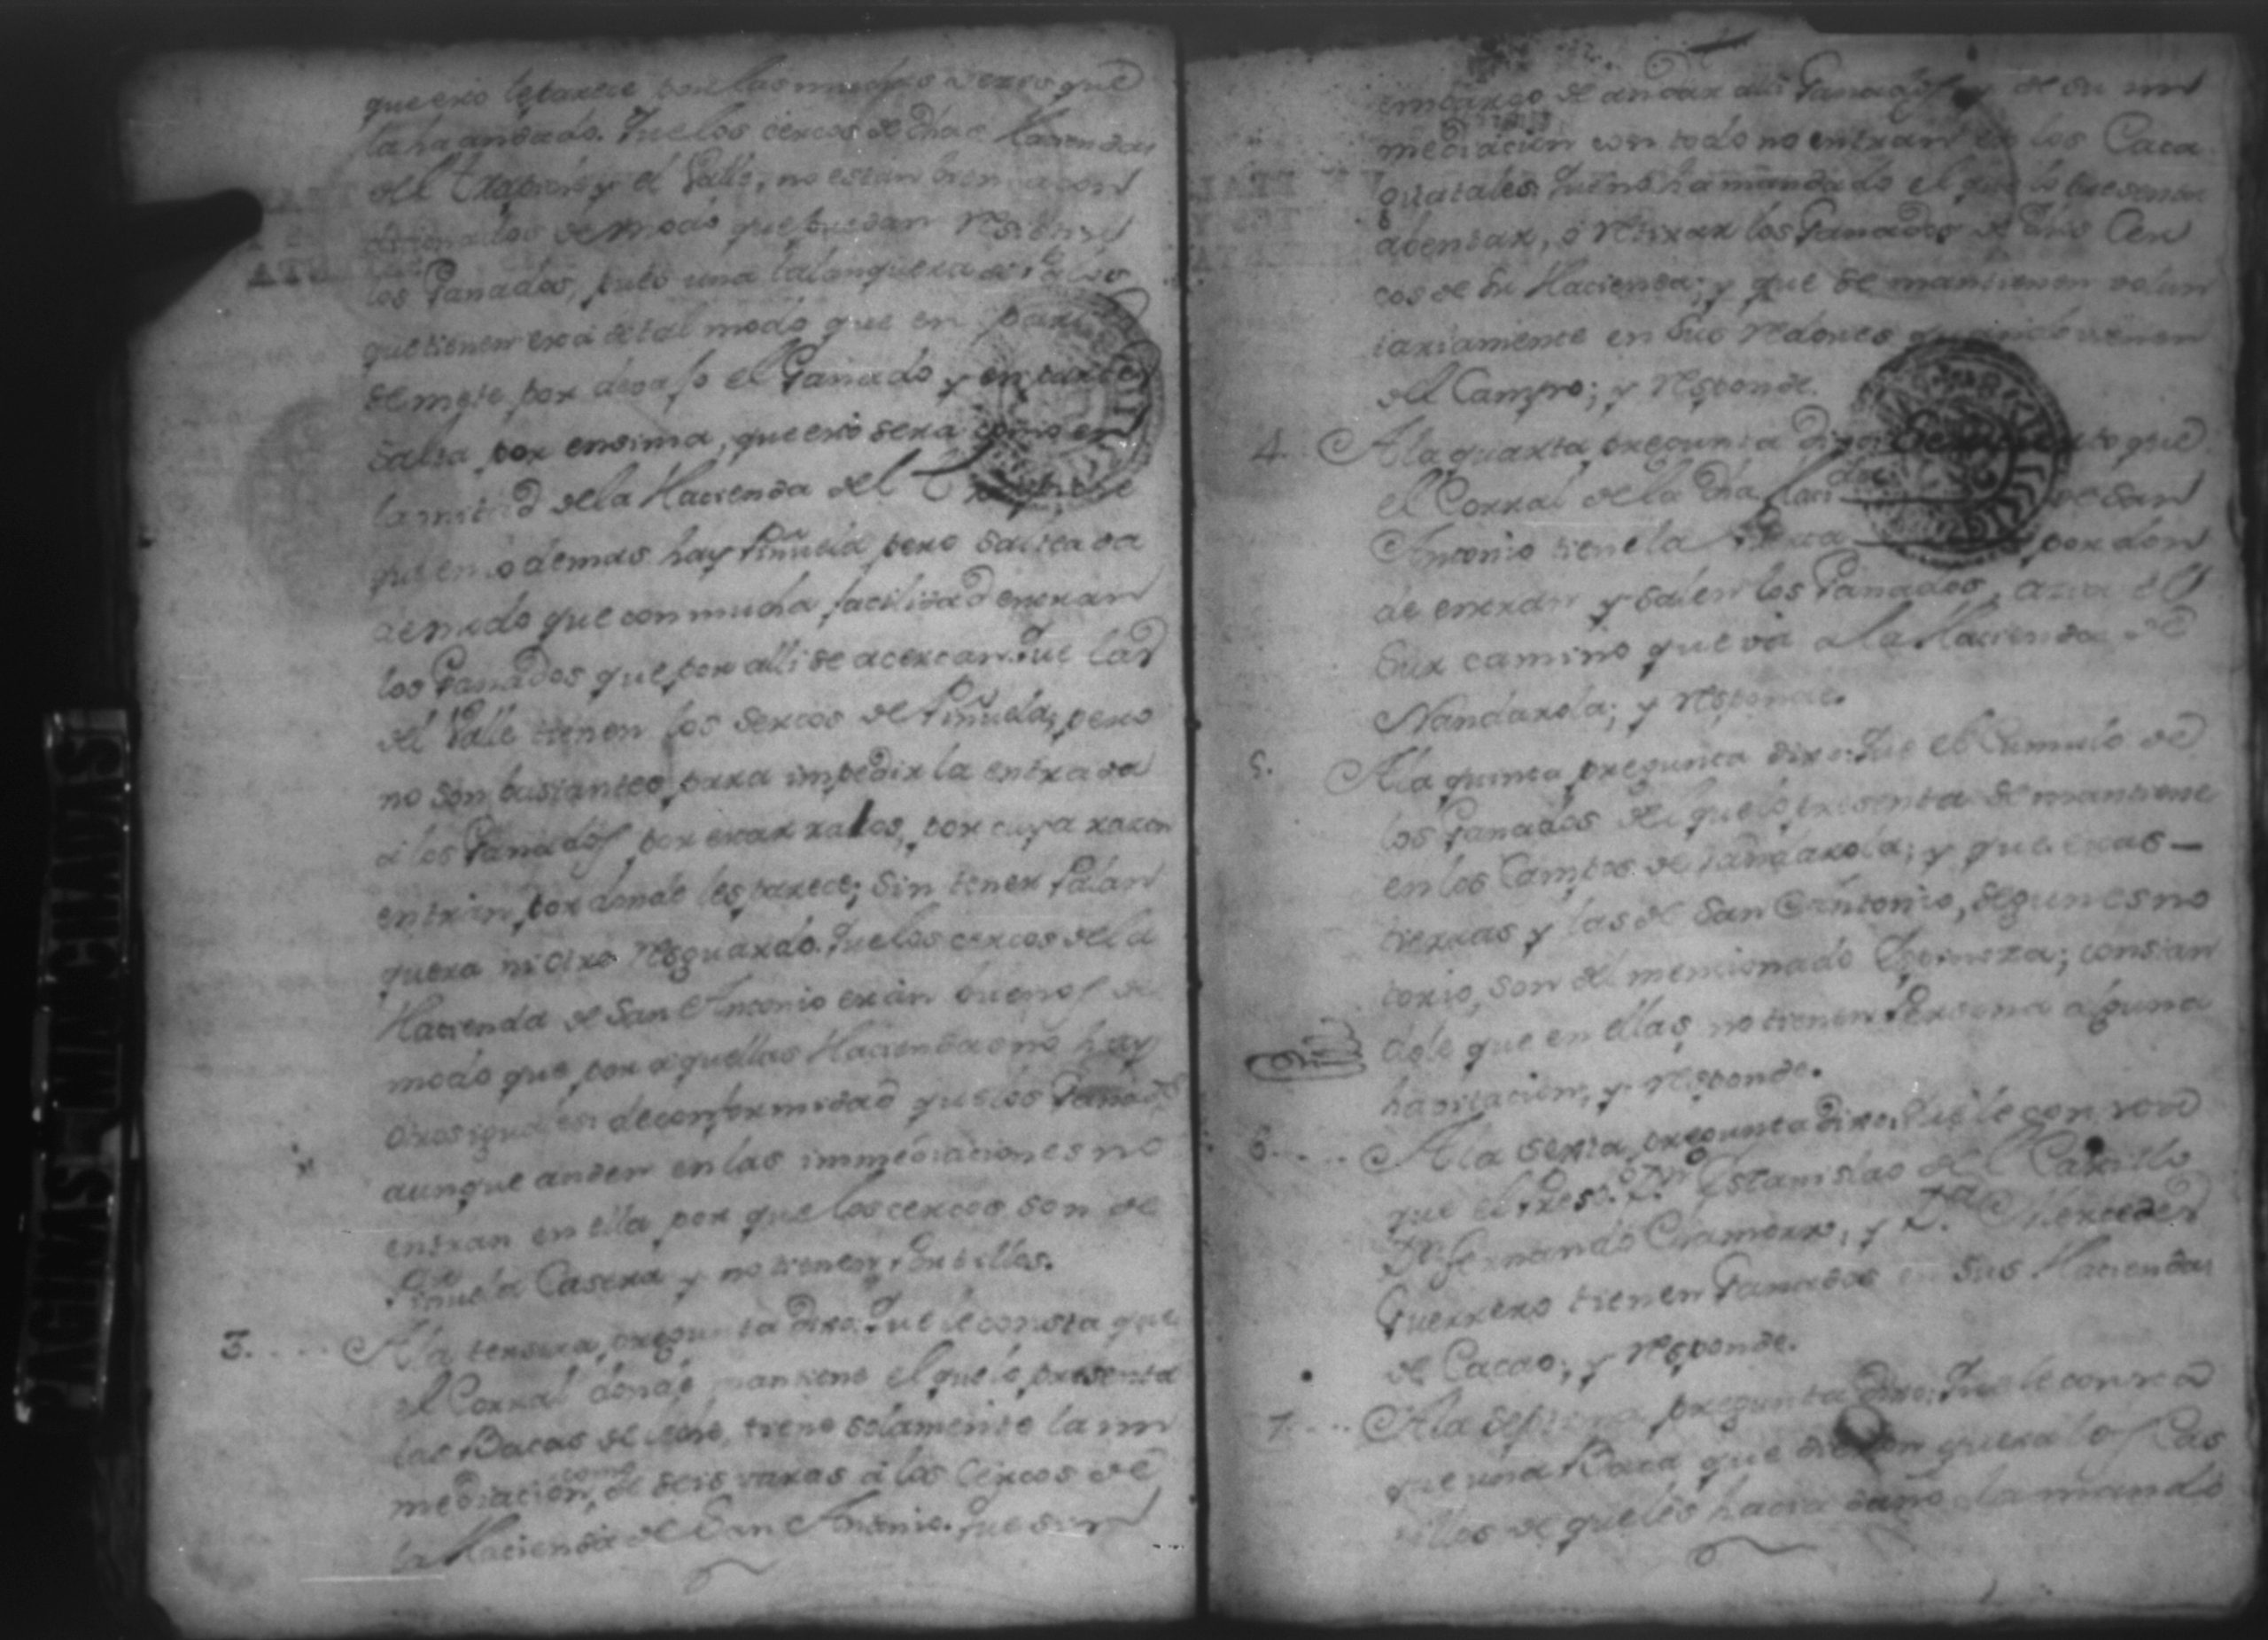 que eso le parece por las muchas veces que
la ha andado. Que los cercos de dhas Haciendas
del y el Valle, no estan bien acon
dicionados de modo que puedan resistir
los Ganados, pues una talanquera
que tienen esta de tal modo que en parte
se mete por devajo el Ganado y en partes
salta por ensima, que esto sera como en
la mitad de la Hacienda del
que en lo demas hay Piñuela pero salteada
de modo que con mucha facilidad entran
los Ganados que por alli se acercan. Que las
del Valle tienen los sercos de Piñuela; pero
no son bastantes para impedir la entrada
á los Ganados por estar ralos, por cuya razon
entran por donde les parece; sin tener Palan
quera ni otro resguardo. Que los cercos de la
Hacienda de San Antonio están buenos de
modo que por aquellas Haciendas no hay
otros iguales: de conformidad que los Ganados
aunque anden en las immediaciones no
entran en ella por que los cercos son de
Piñuela Casera y no tienen Portillos.
3. A la tersera pregunta dixo: Que le consta que
el Corral donde mantiene el que lo presenta
las Bacas de leche, tiene solamente la in
mediacion, como de seis varas á los Cercos de
la Hacienda de San Antonio. Que sin
embargo de andar alli Ganados y de su in
mediacion con todo no entran en los Caca
guatales. Que no ha mandado el que lo presenta
abentar, ó retirar los Ganados de dhos Cer
cos de su Hacienda; y que se mantienen volun
tariamente en sus redores quando vienen
del Campo; y responde.
4. A la quarta pregunta dixo: que
el Corral de la dha Hacienda de San
Antonio tiene la Puerta por don
de entran y salen los Ganados, azia el
Sur camino que va a la Hacienda de
Nandarola; y responde.
5. A la quinta pregunta dixo: Que el Cumulo de
los Ganados del que lo presenta se mantiene
en los Campos de Nandarola; y que estas
tierras y las de San Antonio, segun es no
torio, son del mencionado Espinoza; constan
dole que en ellas no tienen Persona alguna
habitacion, y responde.
6. A la sexta pregunta dixo: Que le consta
que el Presb.o D.n Estanislao del Castillo
D.n Fernando Chamorro, y D.a Mercedes
Guerrero tienen Ganados en sus Haciendas
de Cacao; y responde.
7. A la septima pregunta dixo: Que le consta
que una Baca que los Cas
tillos de que les hacia daño la mando